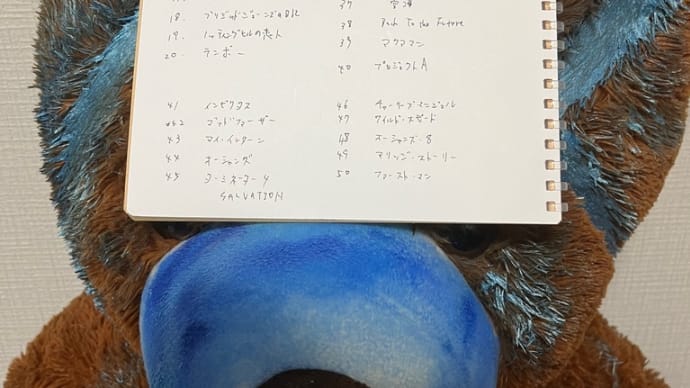 18. ブリジットジョーンズの日記
19. ノッティングヒルの恋人
20. ランボー
37
38 Back To the Future
39 アクアマン
40 プロジェクトA
41 インセプション
42 ゴッドファーザー
43 マイ・インターン
44 オーシャンズ
45 ターミネーター4
SALVATION
46 チャーリーズ・エンジェル
47 ワイルド・スピード
48 オーシャンズ・8
49 マリッジ・ストーリー
50 ファースト・マン